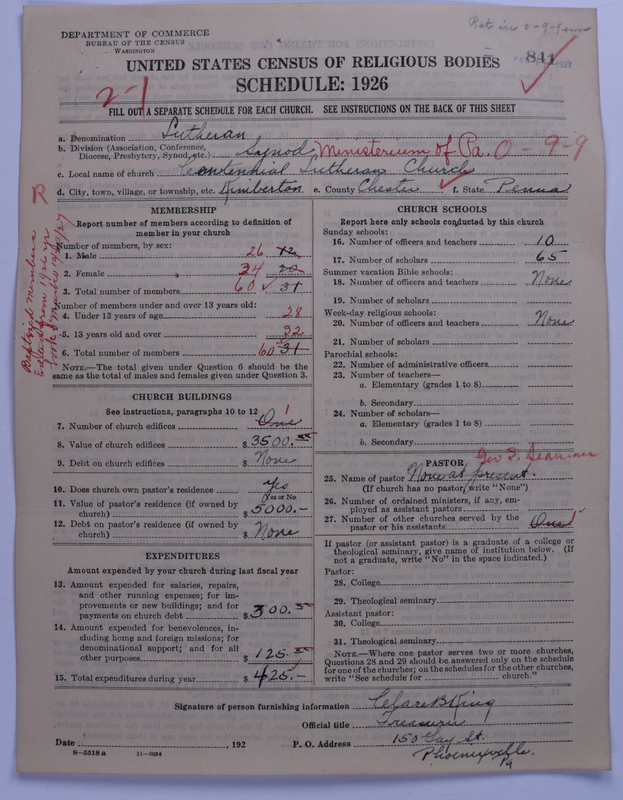 Ret in 0-9-9
DEPARTMENT OF COMMERCE
BUREAU OF THE CENSUS
WASHINGTON
841
UNITED STATES CENSUS OF RELIGIOUS BODIES
SCHEDULE: 1926
2-1
FILL OUT A SEPARATE SCHEDULE FOR EACH CHURCH. SEE INSTRUCTIONS ON THE BACK OF THIS SHEET
a. Denomination Lutheran
b. Division (Association, Conference, Diocese, Presbytery, Synod, etc.) Synod Ministerium of Pa. 0-9-9
c. Local name of church Centennial Lutheran Church
d. City, town, village, or township, etc. Kimberton e. County Chester f. State Penna
R
Baptized members
MEMBERSHIP
Report number of members according to definition of member in your church
Number of members, by sex:
1. Male 26 12
2. Female 34 20
3. Total number of members 60 31
Number of members under and over 13 years old:
4. Under 13 years of age 28
5. 13 years old and over 32
6. Total number of members 60 31
NOTE.—The total given under Question 6 should be the same as the total of males and females given under Question 3.
CHURCH BUILDINGS
See instructions, paragraphs 10 to 12
7. Number of church edifices One 1
8. Value of church edifices $3500.
9. Debt on church edifices $ None
10. Does church own pastor's residence Yes
Yes or No
11. Value of pastor's residence (if owned by church) $5000.-
12. Debt on pastor's residence (if owned by church) $ None
EXPENDITURES
Amount expended by your church during last fiscal year
13. Amount expended for salaries, repairs, and other running expenses; for improvements or new buildings; and for payments on church debt $300.
14. Amount expended for benevolences, including home and foreign missions; for denominational support; and for all other purposes $125.
15. Total expenditures during year $425.-
CHURCH SCHOOLS
Report here only schools conducted by this church
Sunday schools:
16. Number of officers and teachers 10
17. Number of scholars 65
Summer vacation Bible schools:
18. Number of officers and teachers None
19. Number of scholars
Week-day religious schools:
20. Number of officers and teachers None
21. Number of scholars
Parochial schools:
22. Number of administrative officers
23. Number of teachers—
a. Elementary (grades 1 to 8)
b. Secondary
24. Number of scholars—
a. Elementary (grades 1 to 8)
b. Secondary
PASTOR
25. Name of pastor None at present.
(If church has no pastor, write "None")
26. Number of ordained ministers, if any, employed as assistant pastors
27. Number of other churches served by the pastor or his assistants One 1
If pastor (or assistant pastor) is a graduate of a college or theological seminary, give name of institution below. (If not a graduate, write "No" in the space indicated.)
Pastor:
28. College
29. Theological seminary
Assistant pastor:
30. College
31. Theological seminary
NOTE.—Where one pastor serves two or more churches, Questions 28 and 29 should be answered only on the schedule for one of the churches; on the schedules for the other churches, write "See schedule for church."
Signature of person furnishing information King
Official title Treasurer
Date , 192 P. O. Address 150 Gay St.
Phoenixville.
Pa
8-5518 a 11-9054